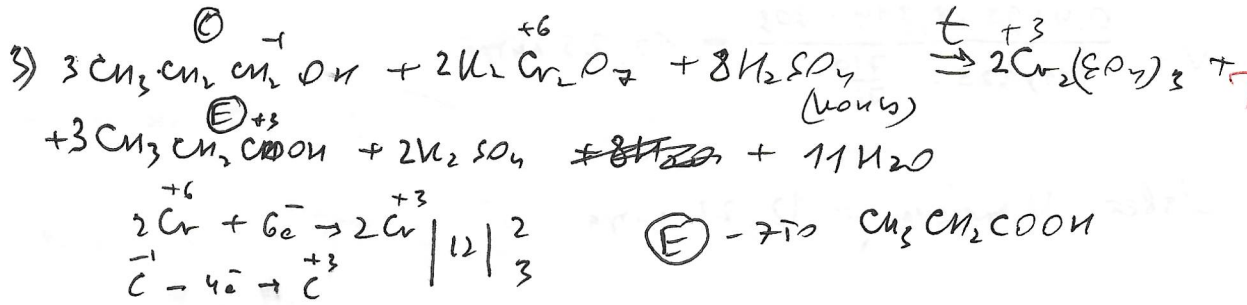 3) 3CH₃CH₂CH₂⁻¹OH (C) + 2K₂Cr₂⁺⁶O₇ + 8H₂SO₄ (конц) t→ 2Cr₂⁺³(SO₄)₃ +
+3CH₃CH₂C⁺³OOH (E) + 2K₂SO₄ + 11H₂O
2Cr⁺⁶ + 6e⁻ → 2Cr⁺³ | 12 | 2
C⁻¹ - 4e⁻ → C⁺³ 3
(E) - это CH₃CH₂COOH